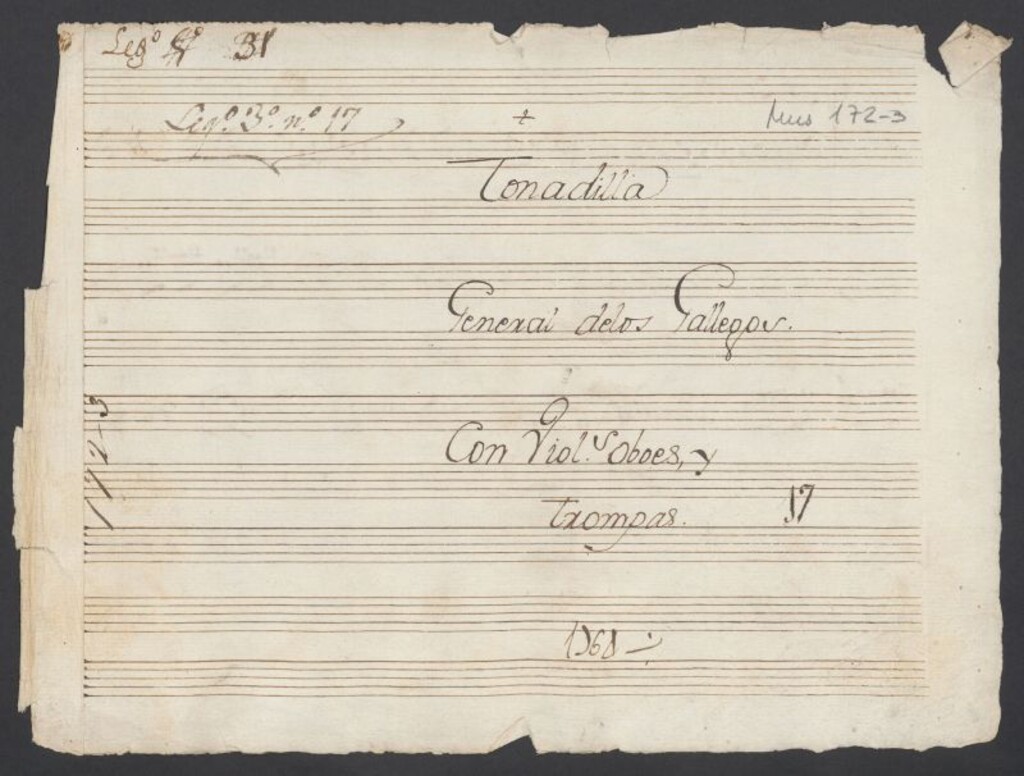 Leg.º 31
Leg.º 3.º n.º 17
+
Mus 172-3
Tonadilla
General delos Gallegos.
172-3
Con Viol.s Oboes, y
trompas.
17
1768